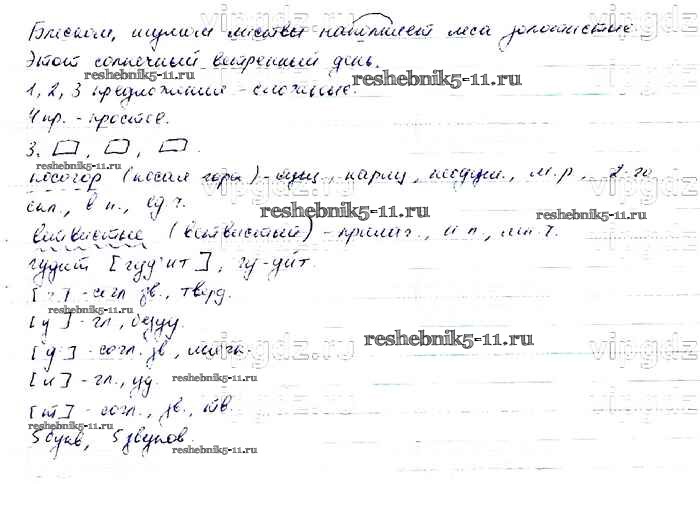 Блеском, шумом листвы наполняет леса золотистые
Этот солнечный ветренный день.
reshebnik5-11.ru
1, 2, 3 предложения - сложные.
4 пр. - простое.
3. , , .
reshebnik5-11.ru
косогор (косая гора) - сущ., нариц., неодуш., м.р., 2-го
скл., в п., ед ч.
reshebnik5-11.ru
ветвистые (ветвистый) - прилаг., и п., мн. ч.
гудит [гуд'ит], гу-дит.
[г] - согл зв., тверд.
reshebnik5-11.ru
[у] - гл., безуд.
reshebnik5-11.ru
[д'] - согл. зв., мягк.
[и] - гл., уд.
reshebnik5-11.ru
[т] - согл., зв., тв.
reshebnik5-11.ru
5 букв, 5 звуков.
reshebnik5-11.ru
vipgdz.ru